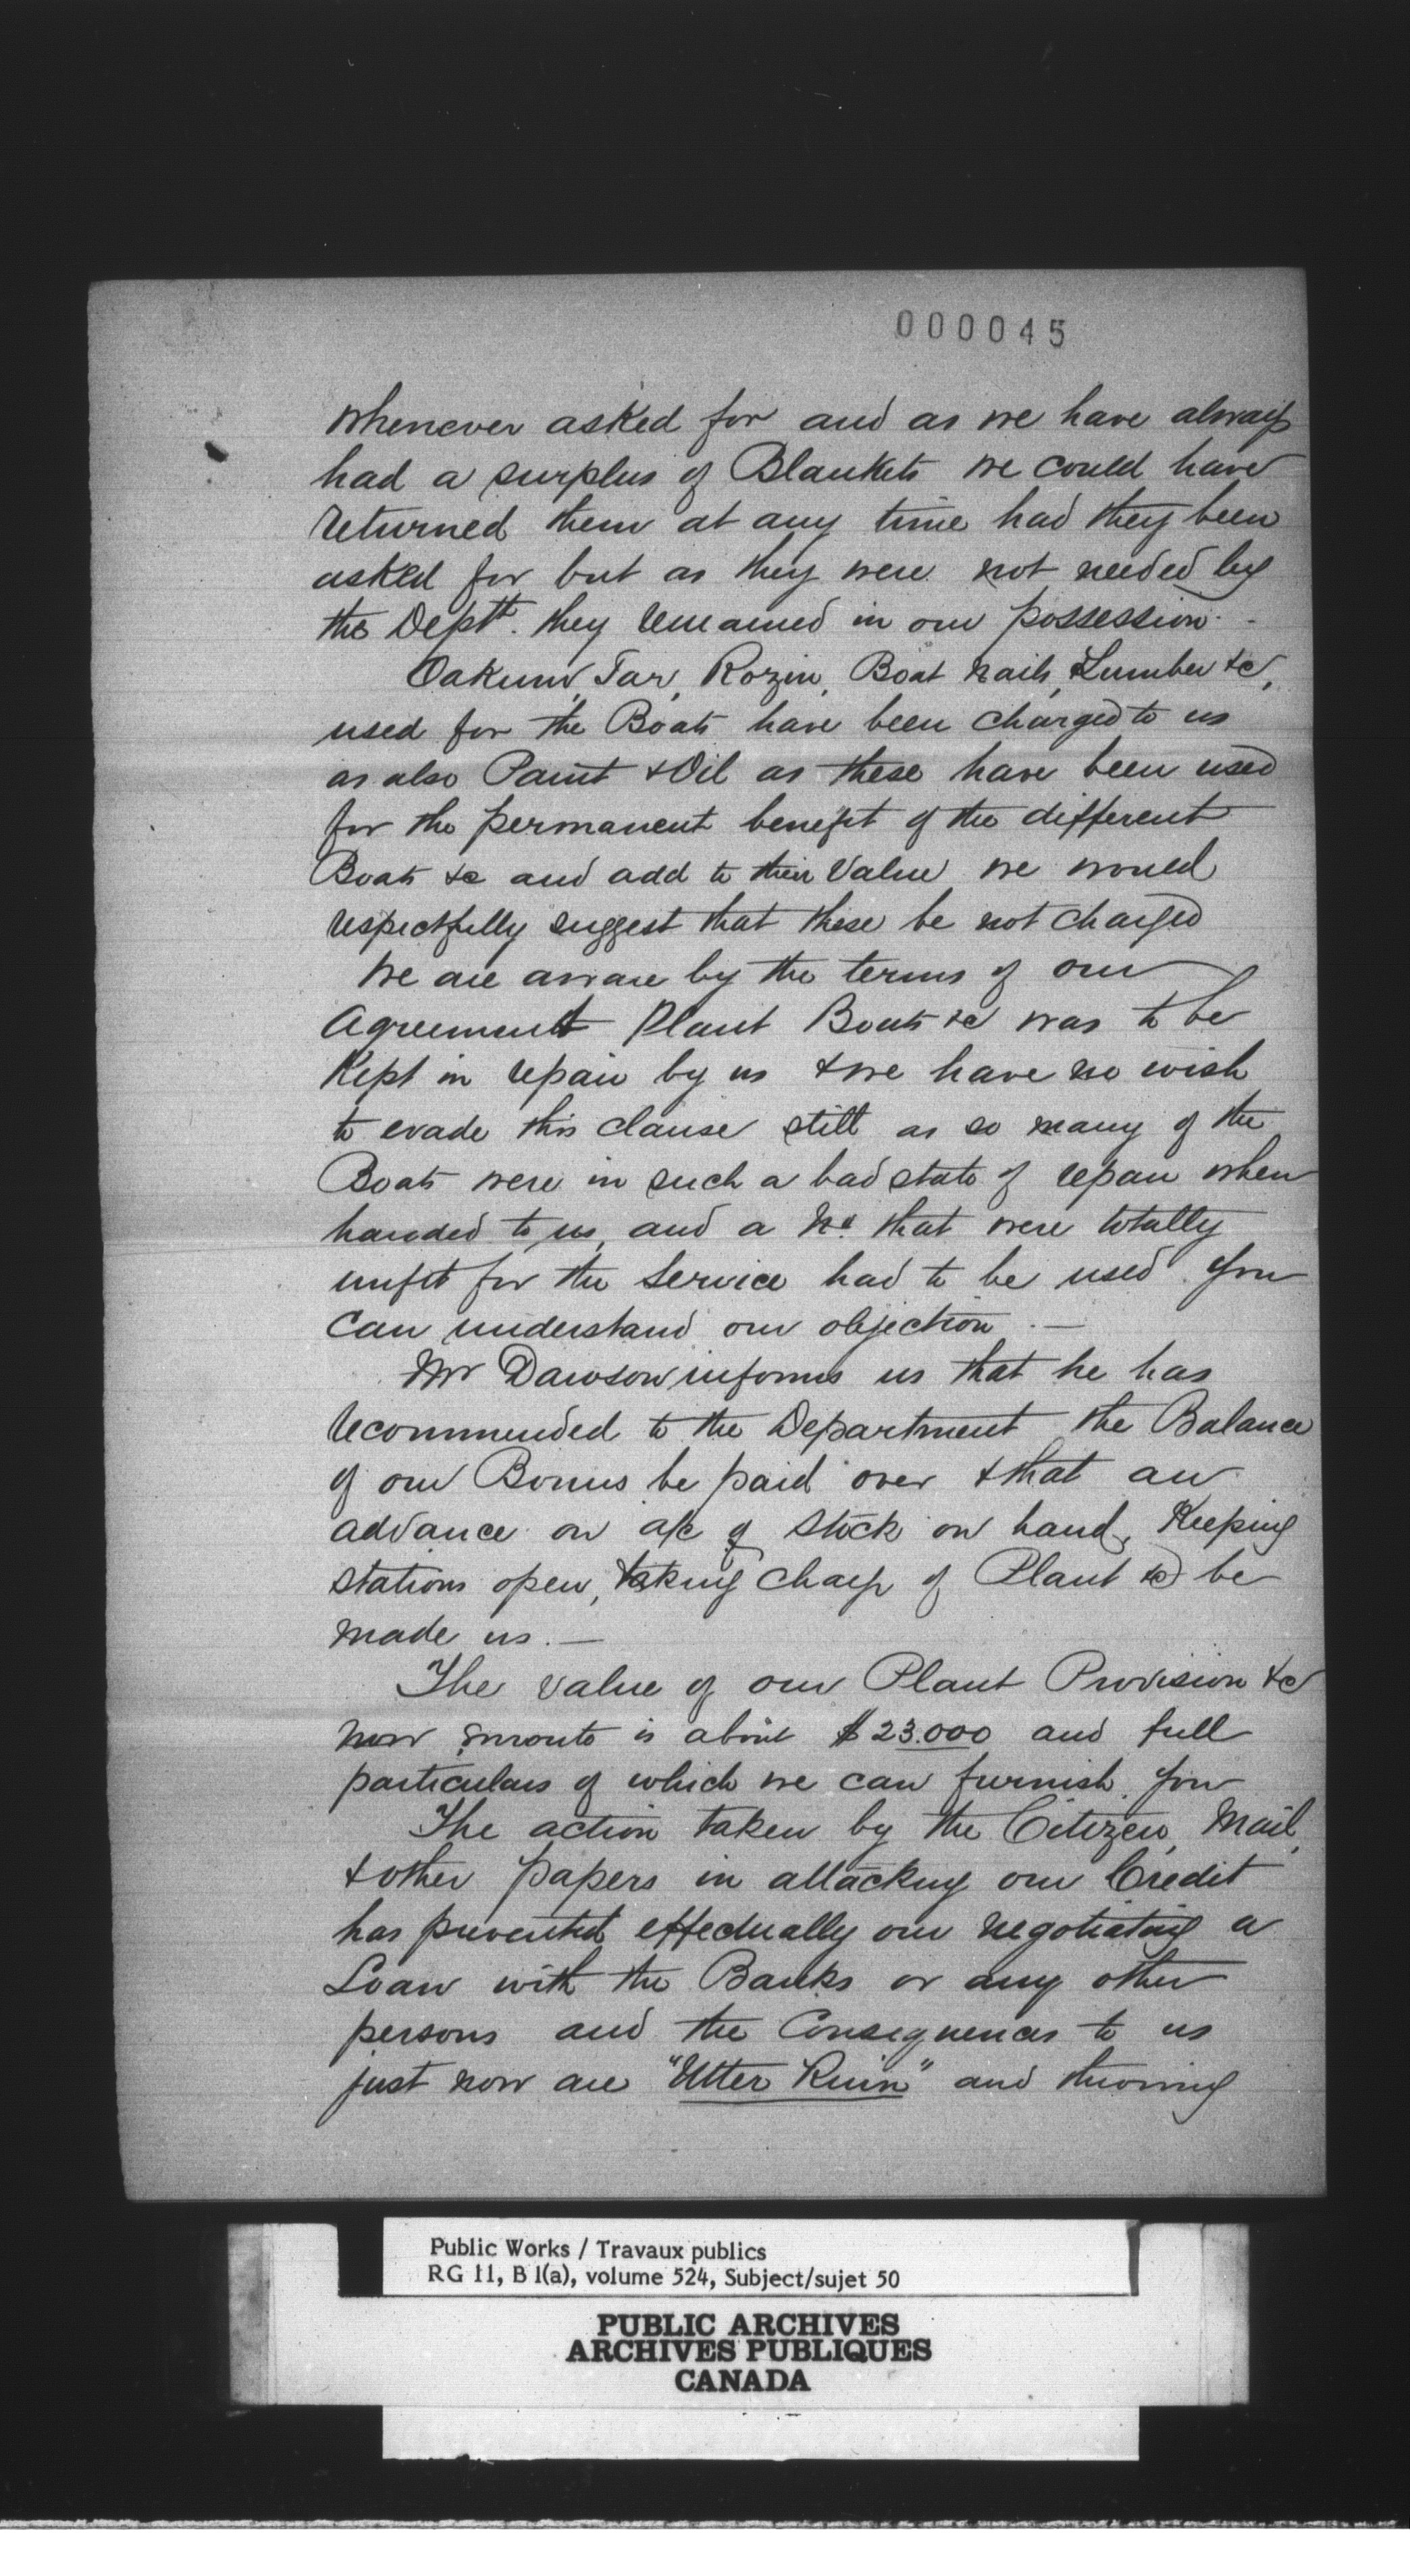 000045
whenever asked for and as we have always
had a surplus of Blankets we could have
returned them at any time had they been
asked for but as they were not needed by
the Deptt. they remained in our possession.
Oakum, Tar, Rozin, Boat nails, Lumber &c,
used for the Boats have been charged to us
as also Paint & Oil as these have been used
for the permanent benefit of the different
Boats &c and add to their Value we would
respectfully suggest that these be not charged
We are aware by the terms of our
Agreement Plant Boats &c was to be
Kept in repair by us & we have no wish
to evade this clause still as so many of the
Boats were in such a bad state of repair when
handed to us, and a No. that were totally
unfit for the Service had to be used. You
can understand our objection. —
Mr Dawson informs us that he has
recommended to the Department the Balance
of our Bonus be paid over & that an
advance on a/c of Stock on hand, Keeping
stations open, taking charge of Plant &c be
made us. —
The value of our Plant Provision &c
now enroute is about $23.000 and full
particulars of which we can furnish you
The action taken by the Citizen, Mail,
& other papers in attacking our Credit
has prevented effectually our negotiating a
Loan with the Banks or any other
persons and the Consequences to us
just now are "Utter Ruin" and throwing
Public Works / Travaux publics
RG 11, B 1(a), volume 524, Subject/sujet 50
PUBLIC ARCHIVES
ARCHIVES PUBLIQUES
CANADA